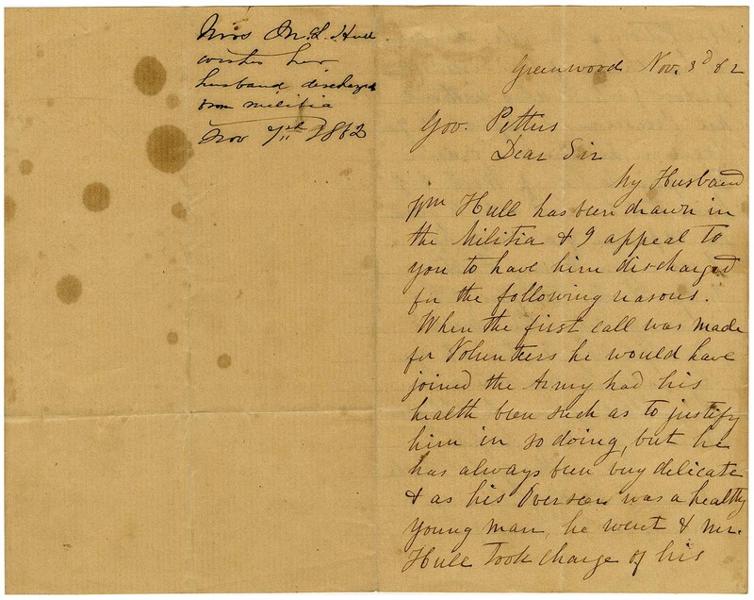 Mrs M. L. Hull
wishes her
husband discharged
from militia
Nov 7th 1862
Greenwood Nov. 3d 62
Gov. Pettus
Dear Sir
My Husband
Wm Hull has been drawn in
the Militia & I appeal to
you to have him discharged
for the following reasons.
When the first call was made
for Volunteers he would have
joined the Army had his
health been such as to justify
him in so doing, but he
has always been very delicate
& as his Overseer was a healthy
young man, he went & Mr.
Hull took charge of his